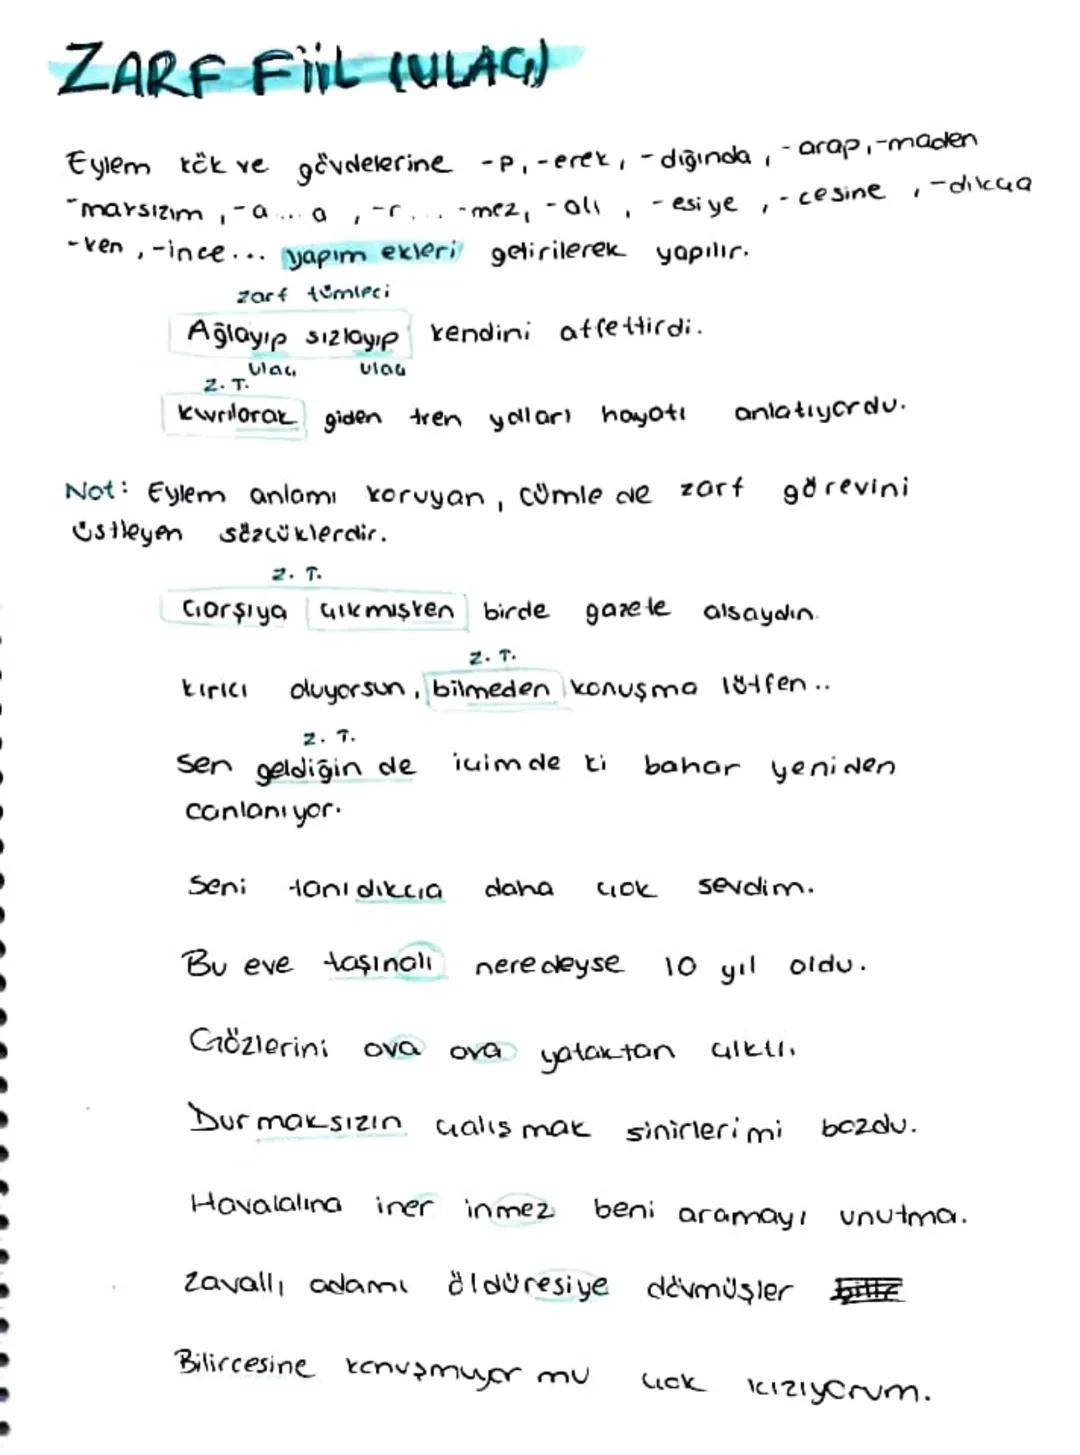 ZARF FİİL (ULAÇ)
Eylem kök ve gövdelerine -p, -erek, -dığında, -arap, -maden
-marsızım, -a... a, -r... -mez, -alı, -esiye, -cesine, -dıkça
-ken, -ince... yapım ekleri getirilerek yapılır.
zarf tümleci
Ağlayıp sızlayıp kendini affettirdi.
ulaç ulaç
Z.T.
kıvrılarak giden tren yolları hayatı anlatıyordu.
Not: Eylem anlamı koruyan, cümle de zarf görevini
üstleyen sözcüklerdir.
Z.T.
Çarşıya çıkmışken birde gazete alsaydın.
Z.T.
kırıcı oluyorsun, bilmeden konuşma lütfen..
Z.T.
Sen geldiğin de içimde ki bahar yeniden
canlanıyor.
Seni tanıdıkça daha çok sevdim.
Bu eve taşınalı neredeyse 10 yıl oldu.
Gözlerini ova ova yataktan çıktı.
Durmaksızın çalışmak sinirlerimi bozdu.
Havalalına iner inmez beni aramayı unutma.
Zavallı adamı öldüresiye dövmüşler
Bilircesine konuşmuyor mu çok kızıyorum.